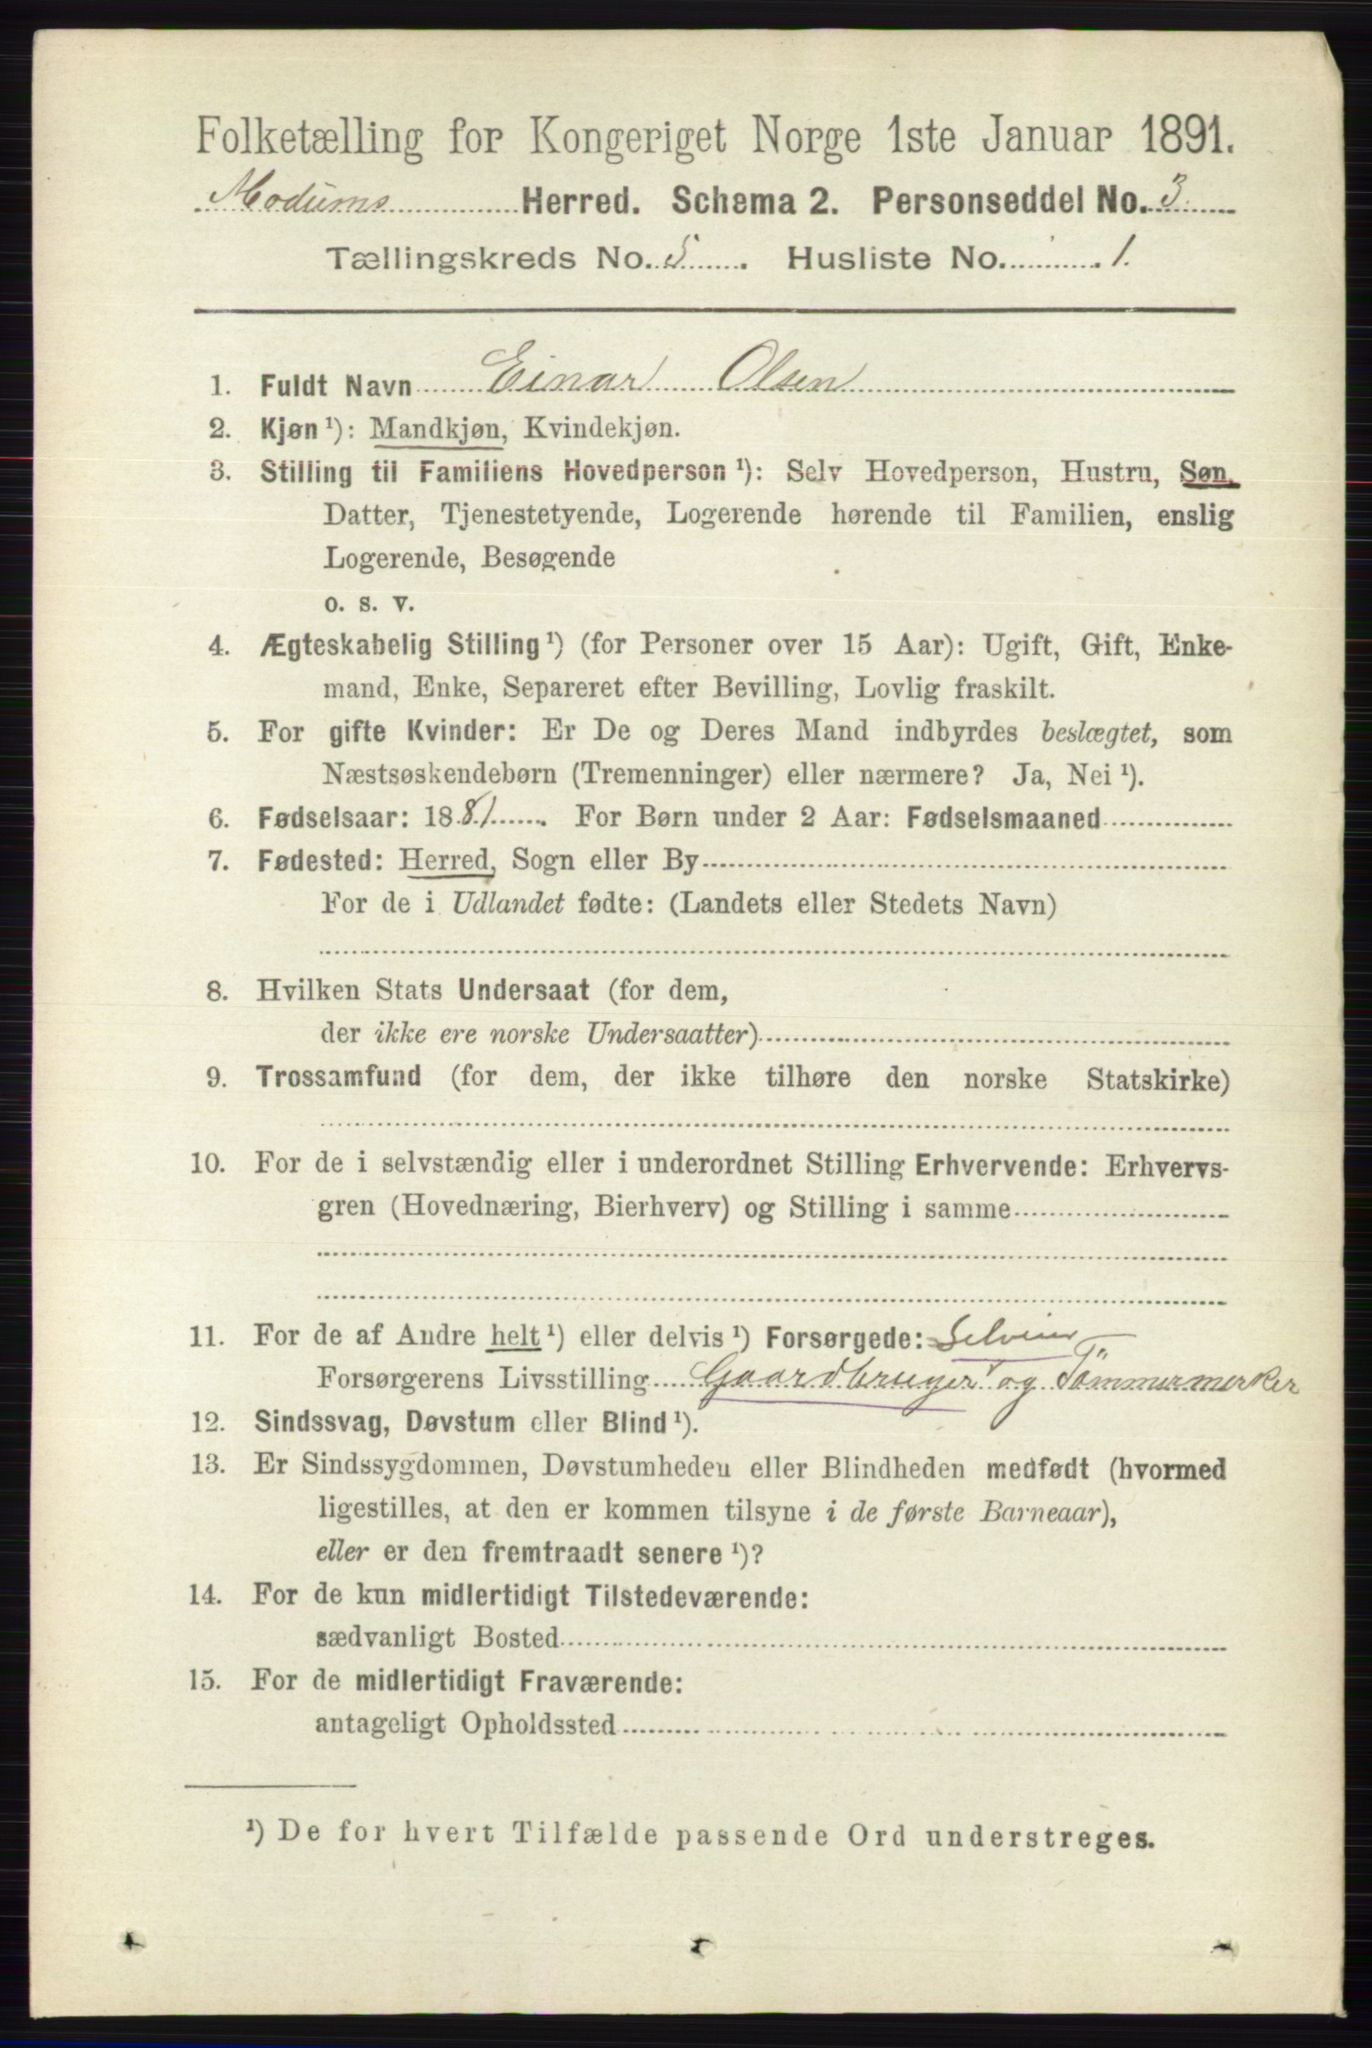 Folketælling for Kongeriget Norge 1ste Januar 1891.
Modums Herred. Schema 2. Personseddel No. 3
Tællingskreds No. 5. Husliste No. 1.
1. Fuldt Navn Einar Olsen
2. Kjøn ¹): Mandkjøn, Kvindekjøn.
3. Stilling til Familiens Hovedperson ¹): Selv Hovedperson, Hustru, Søn,
Datter, Tjenestetyende, Logerende hørende til Familien, enslig
Logerende, Besøgende
o. s. v.
4. Ægteskabelig Stilling ¹) (for Personer over 15 Aar): Ugift, Gift, Enke-
mand, Enke, Separeret efter Bevilling, Lovlig fraskilt.
5. For gifte Kvinder: Er De og Deres Mand indbyrdes beslægtet, som
Næstsøskendebørn (Tremenninger) eller nærmere? Ja, Nei ¹).
6. Fødselsaar: 1881. For Børn under 2 Aar: Fødselsmaaned
7. Fødested: Herred, Sogn eller By
For de i Udlandet fødte: (Landets eller Stedets Navn)
8. Hvilken Stats Undersaat (for dem,
der ikke ere norske Undersaatter)
9. Trossamfund (for dem, der ikke tilhøre den norske Statskirke)
10. For de i selvstændig eller i underordnet Stilling Erhvervende: Erhvervs-
gren (Hovednæring, Bierhverv) og Stilling i samme
11. For de af Andre helt ¹) eller delvis ¹) Forsørgede: Selveier
Forsørgerens Livsstilling Gaardbruger og Tömmermerker
12. Sindssvag, Døvstum eller Blind ¹).
13. Er Sindssygdommen, Døvstumheden eller Blindheden medfødt (hvormed
ligestilles, at den er kommen tilsyne i de første Barneaar),
eller er den fremtraadt senere ¹)?
14. For de kun midlertidigt Tilstedeværende:
sædvanligt Bosted
15. For de midlertidigt Fraværende:
antageligt Opholdssted
¹) De for hvert Tilfælde passende Ord understreges.